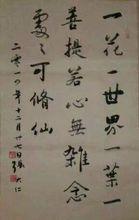 一花一世界一葉
菩提若心無雜念
處處可脩仙
二零一〇年十二月廿七日張仁